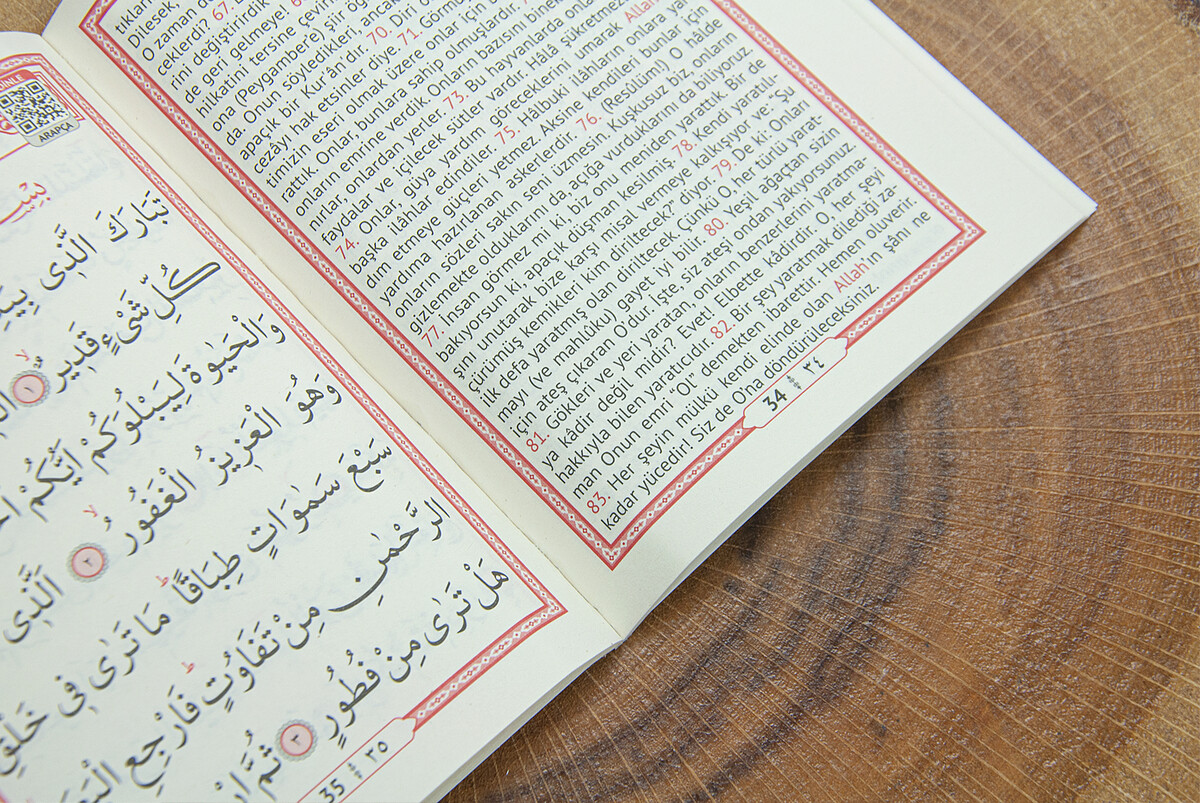 Dilesek,
O zaman
eklerdi? 67.
rini değiştirirdik
de geri gelmeye
hilkatini tersine
ona (Peygambere) şiir
da. Onun söyledikleri,
apaçık bir Kur'ân'dır. 70. Diri
cezâyı hak etsinler diye. 71.
timizin eseri olmak üzere onlar için
rattık. Onlar, bunlara sahip olmuşlardır.
onların emrine verdik. Onların bazısını
nırlar, onlardan yerler. 73. Bu hayvanlarda
faydalar ve içilecek sütler vardır. Hâlâ
74. Onlar, güya yardım göreceklerini umarak Allah
başka ilâhlar edindiler. 75. Hâlbuki ilâhların onlara yar-
dım etmeye güçleri yetmez. Aksine kendileri bunlar için
yardıma hazırlanan askerlerdir. 76. (Resûlüm!) O hâlde
onların sözleri sakın seni üzmesin. Kuşkusuz biz onların
gizlemekte olduklarını da, açığa vurduklarını da biliyoruz.
77. İnsan görmez mi ki, biz onu meniden yarattık. Bir de
bakıyorsun ki, apaçık düşman kesilmiş. 78. Kendi yaratılı-
şını unutarak bize karşı misal vermeye kalkışıyor ve: "Şu
çürümüş kemikleri kim diriltecek?" diyor. 79. De ki: Onları
ilk defa yaratmış olan diriltecek. Çünkü O, her türlü yarat-
mayı (ve mahlûku) gayet iyi bilir. 80. Yeşil ağaçtan sizin
için ateş çıkaran O'dur. İşte, siz ateşi ondan yakıyorsunuz.
81. Gökleri ve yeri yaratan, onların benzerlerini yaratma-
ya kâdir değil midir? Evet! Elbette kâdirdir. O, her şeyi
hakkıyla bilen yaratıcıdır. 82. Bir şey yaratmak dilediği za-
man Onun emri "Ol" demekten ibarettir. Hemen oluverir.
83. Her şeyin mülkü kendi elinde olan Allah'ın şânı ne
kadar yücedir! Siz de O'na döndürüleceksiniz.
34 ٣٤
DİNLE
ARAPÇA
تَبَارَكَ الَّذٖى
كُلِّ شَیْءٍ قَدٖيرٌ ﴿١﴾
وَالْحَيٰوةَ لِيَبْلُوَكُمْ اَيُّكُمْ
وَهُوَ الْعَزٖيزُ الْغَفُورُ ﴿٢﴾ اَلَّذٖى
سَبْعَ سَمٰوَاتٍ طِبَاقًا مَا تَرٰى فٖى خَلْقِ
الرَّحْمٰنِ مِنْ تَفَاوُتٍ فَارْجِعِ
هَلْ تَرٰى مِنْ فُطُورٍ ﴿٣﴾ ثُمَّ
35 ٣٥